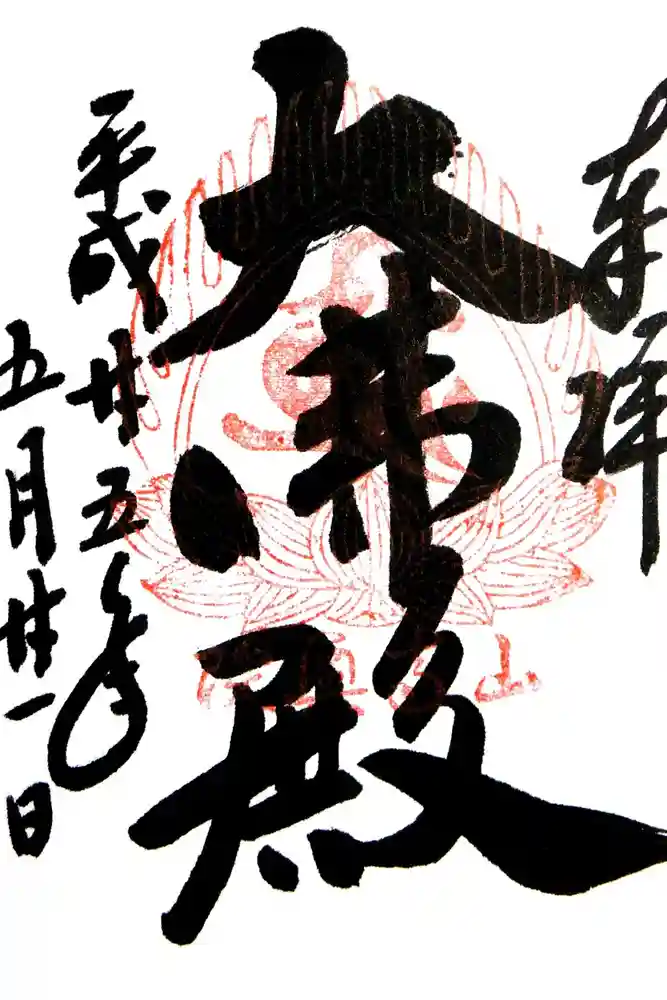 奉拝
大佛殿
平成廿五年
五月廿一日
山